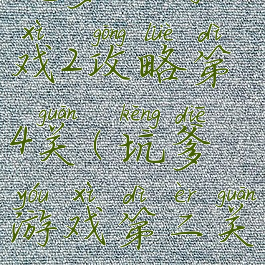 xì gōng lüè dì
戏2攻略第
quān kēng diē
4关(坑爹
yóu xì dì èr guān
游戏第二关